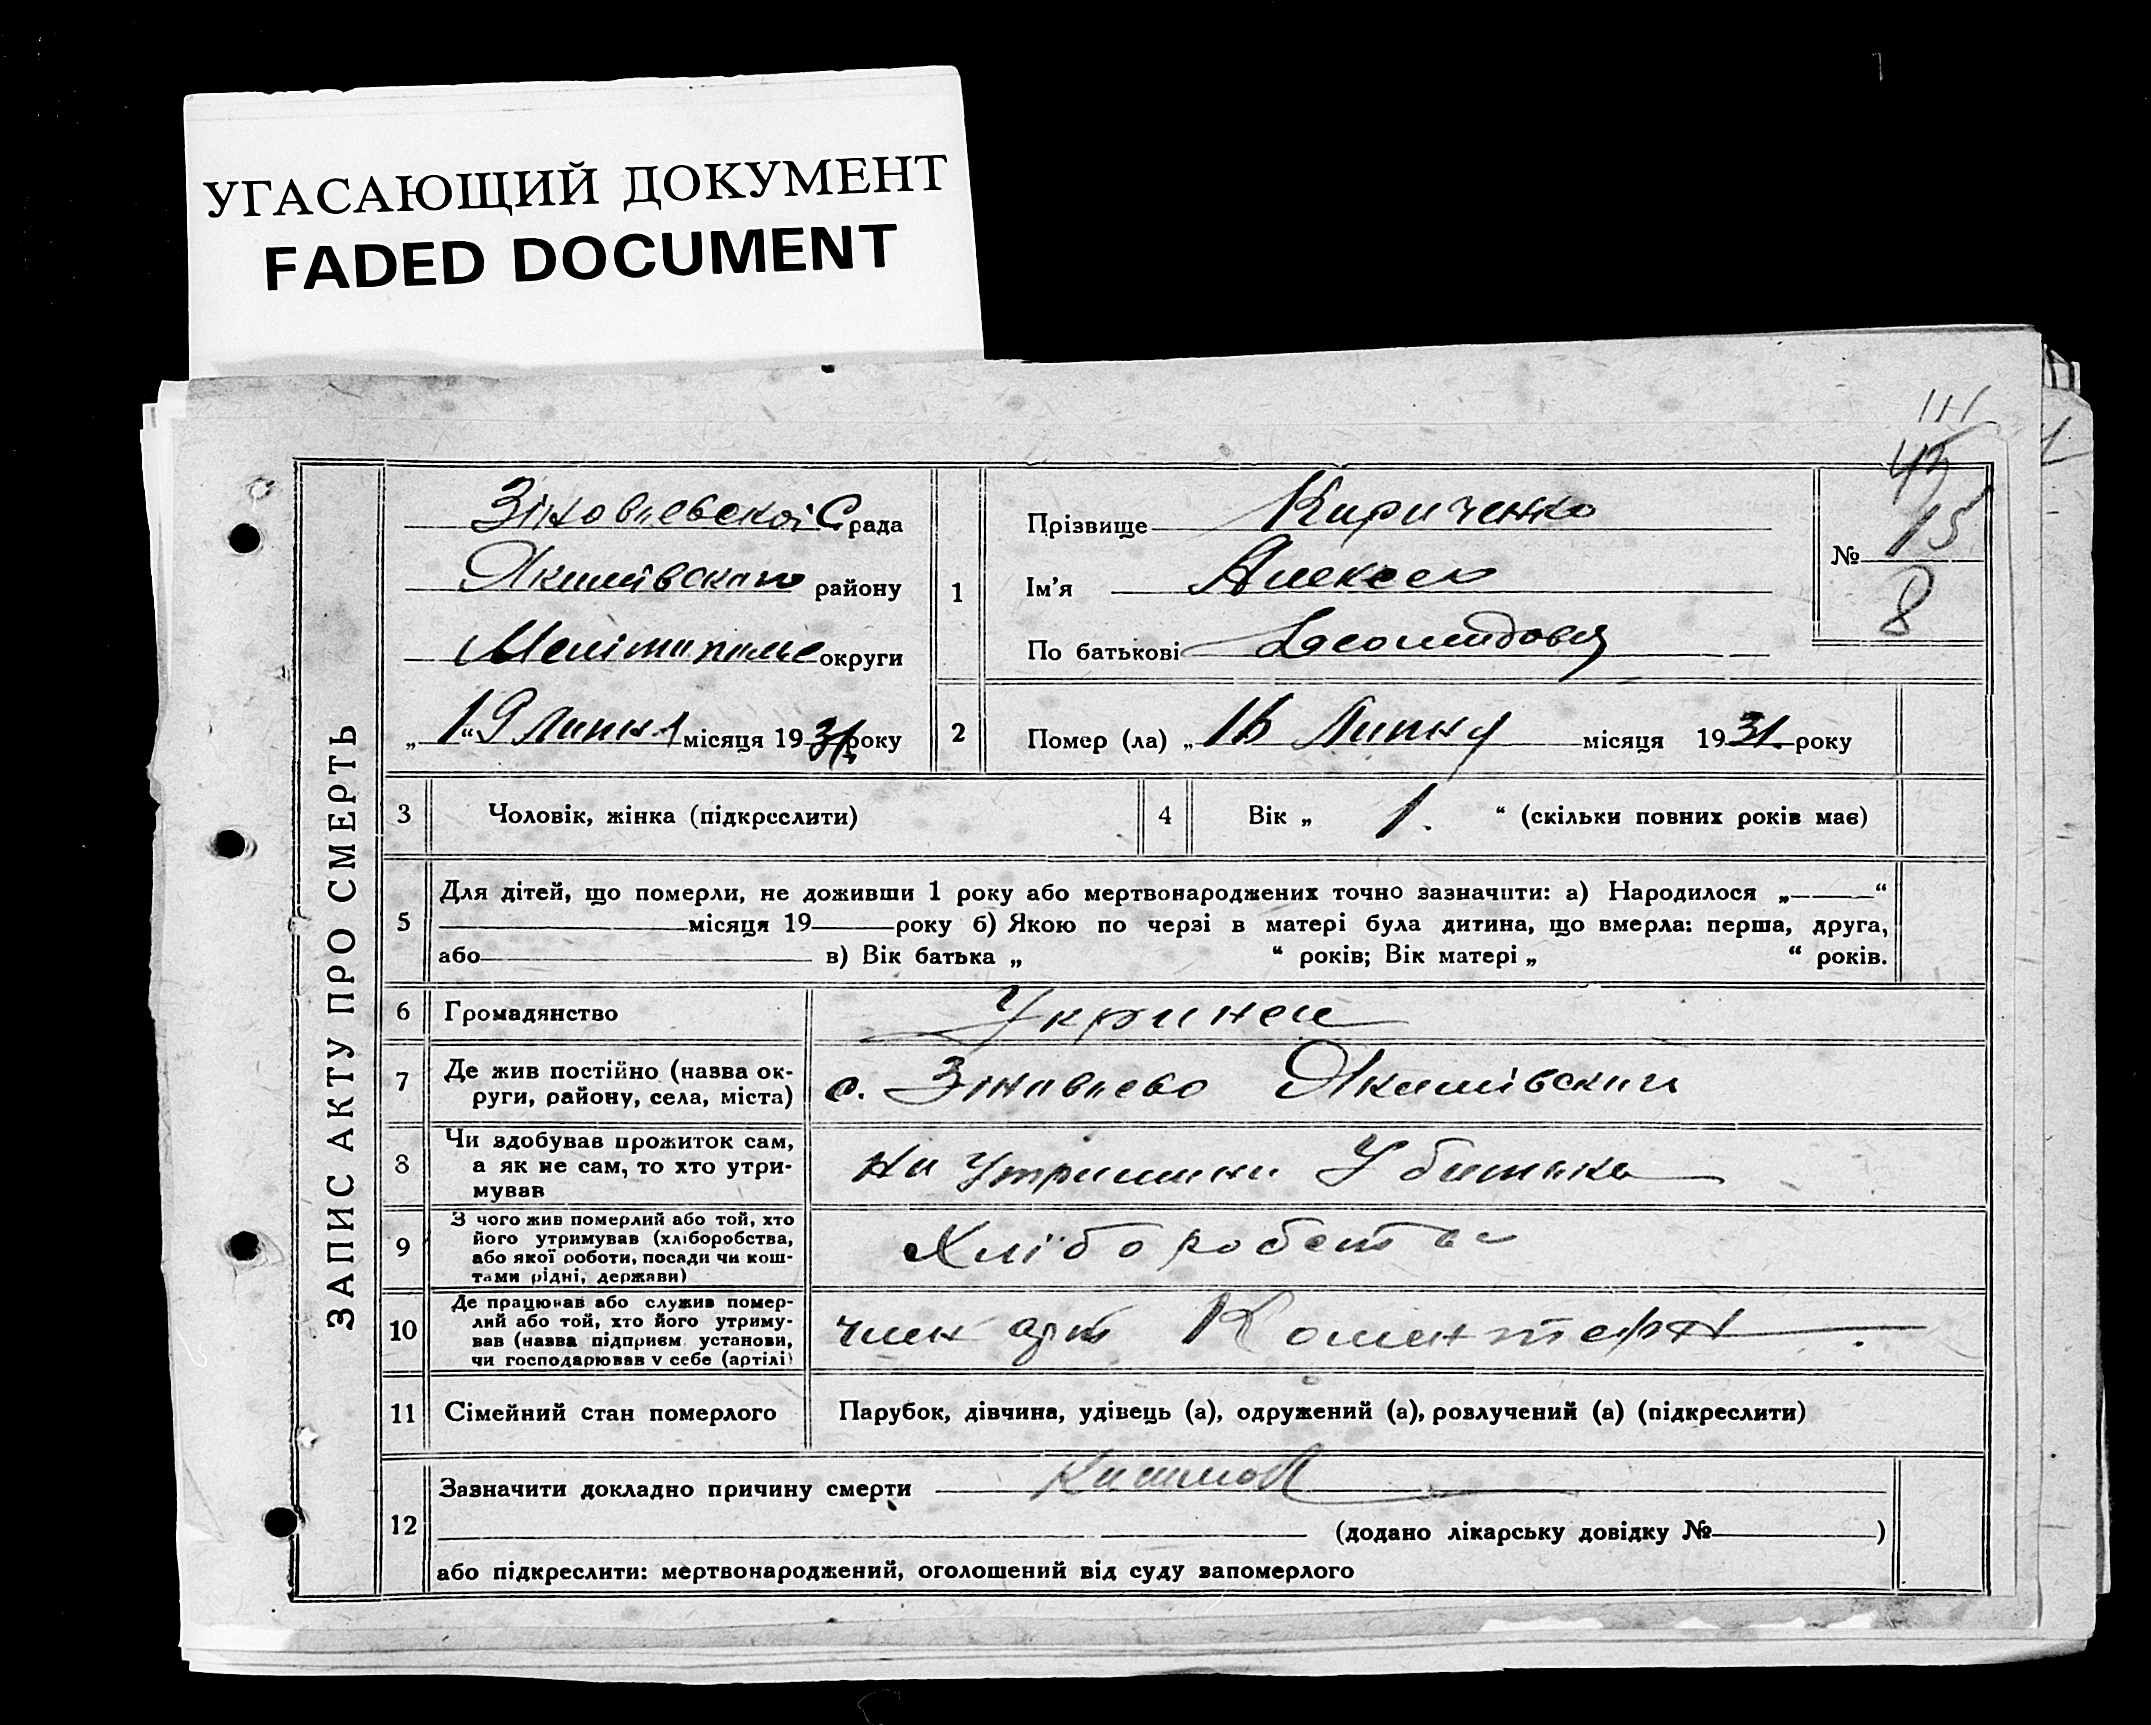 УГАСАЮЩИЙ ДОКУМЕНТ
FADED DOCUMENT
ЗАПИС АКТУ ПРО СМЕРТЬ
Зіновьевской С рада
Якимівского району
округи
„19“ Липня місяця 1931 року
1
Прізвище Кириченко
Ім'я Алексей
По батькові
№ 15
8
2
Помер (ла) „16 Липня місяця 1931. року
3 Чоловік, жінка (підкреслити)
4 Вік „ 1. “ (скільки повних років має)
5 Для дітей, що померли, не доживши 1 року або мертвонароджених точно зазначити: а) Народилося „ “
місяця 19 року б) Якою по черзі в матері була дитина, що вмерла: перша, друга,
або в) Вік батька „ “ років; Вік матері „ “ років.
6 Громадянство
7 Де жив постійно (назва ок-
руги, району, села, міста)
с. Зіновьево Якимівского
8 Чи здобував прожиток сам,
а як не сам, то хто утри-
мував
на утриманні У батька
9 З чого жив померлий або той, хто
його утримував (хліборобства,
або якої роботи, посади чи кош-
тами рідні, держави)
Хліборобство
10 Де працював або служив помер-
лий або той, хто його утриму-
вав (назва підприєм. установи,
чи господарював у себе (артілі)
член арт Коминтерн
11 Сімейний стан померлого
Парубок, дівчина, удівець (а), одружений (а), розлучений (а) (підкреслити)
12 Зазначити докладно причину смерти
(додано лікарську довідку № )
або підкреслити: мертвонароджений, оголошений від суду запомерлого